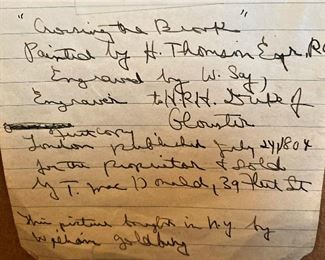 "Crossing the Brook"
Painted by H. Thomson Esqr. R
Engraved by W. Say,
Engraver to H.R.H. Duke of
Gloucster
First copy
London published July 24, 1804
for the proprietor & Sold
by T. Mac Donald, 39 Fleet St
This picture bought in N.Y. by
William Goldburg